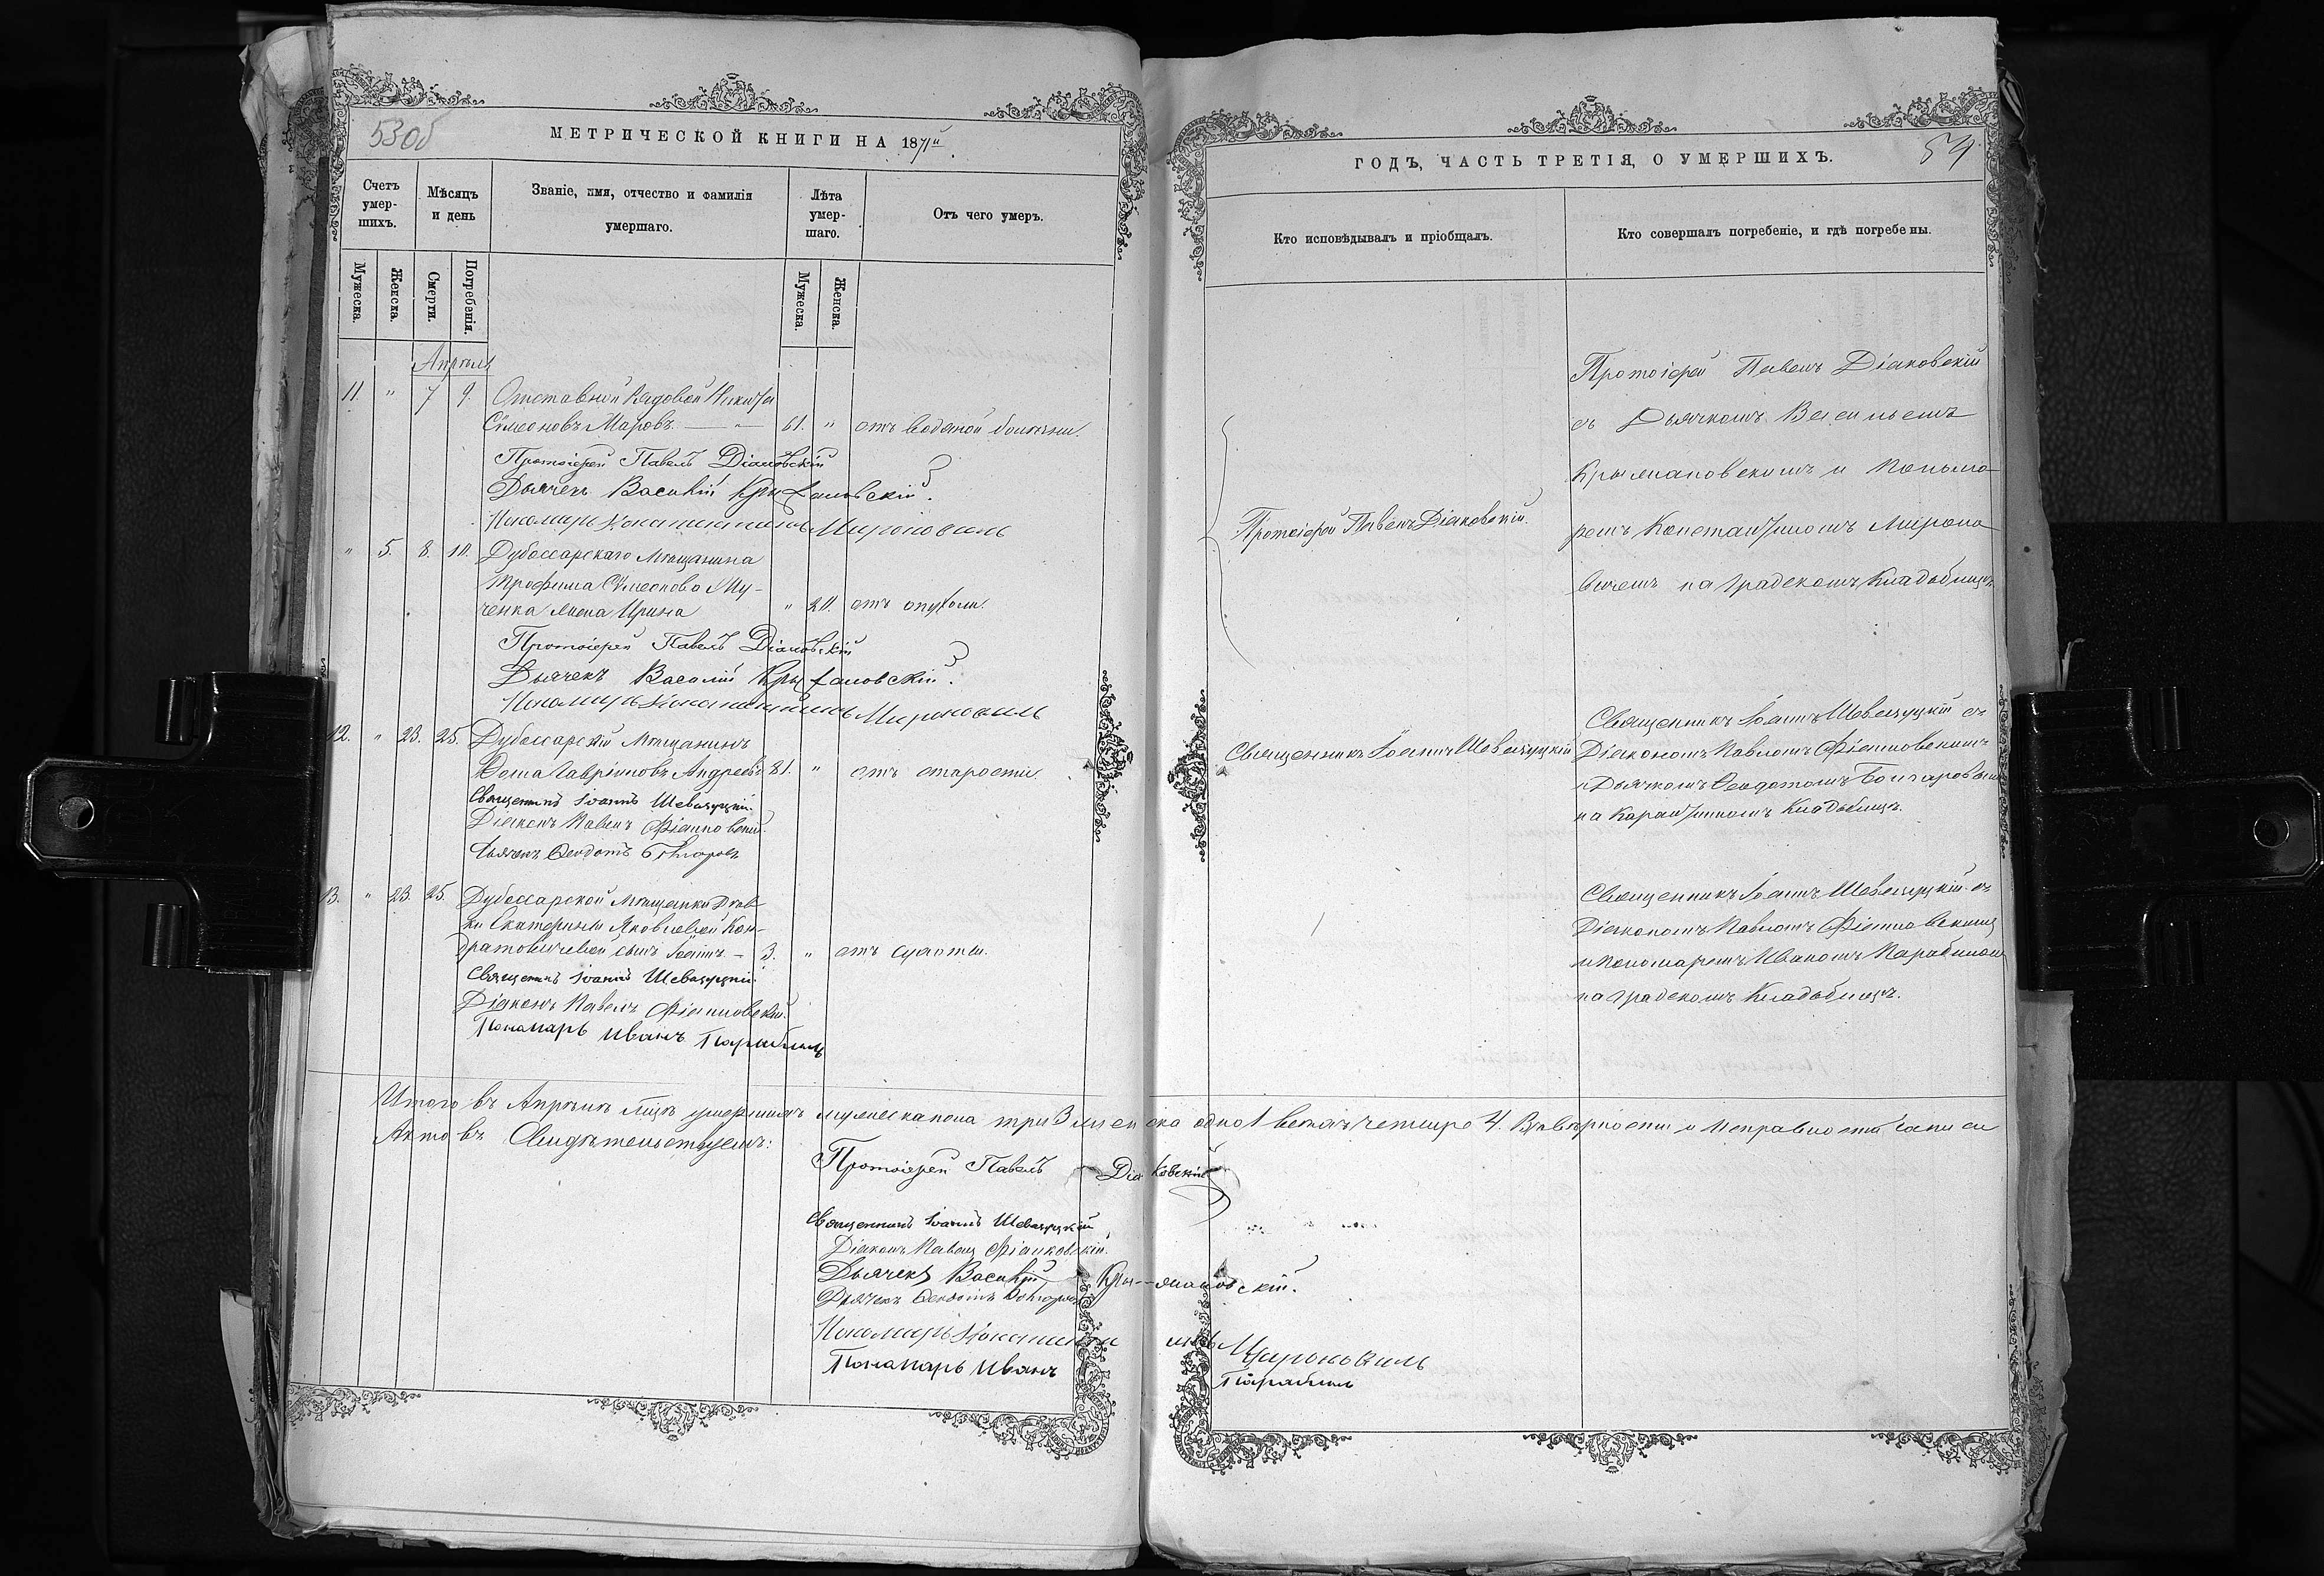 53об
МЕТРИЧЕСКОЙ КНИГИ НА 1871й
Счетъ умер-шихъ.
Мѣсяцъ и день
Званіе, имя, отчество и фамилія
умершаго.
Лѣта умер-шаго.
Отъ чего умеръ.
Мужеска.
Женска.
Смерти.
Погребенія.
Мужеска.
Женска.
Апрѣль
11. " 7 9. Отставной Рядовой Никита
Сѵмеоновъ Маровъ — " — 61. " отъ водяной болѣзни.
Протоіерей Павелъ Діаковскій
Дьячекъ Василій Крыжановскій.
Пономарь Константинъ Мироновичь
" 5. 8. 10. Дубоссарскаго Мѣщанина
Трофима Сѵмеонова Му-
ченка жена Ирина " 20. отъ опухоли.
Протоіерей Павелъ Діаковскій
Дьячекъ Василій Крыжановскій.
Пономарь Константинъ Мироновичь
12. " 23. 25. Дубоссарскій Мѣщанинъ
Ѳома Гавріиловъ Андреевъ 81. " отъ старости
Священникъ Іоаннъ Шевалуцкій.
Діаконъ Павелъ Фіалковскій.
Дьячекъ Ѳеодотъ Бончаровъ
13. " 23. 25. Дубоссарской Мѣщанки Дѣв-
ки Екатерины Яковлевой Кон-
дратовичевой сынъ Іоаннъ — 3. " отъ сухоты.
Священникъ Іоаннъ Шевалуцкій.
Діаконъ Павелъ Фіалковскій.
Понамарь Иванъ Парабинъ
Итого въ Апрѣлѣ м-цѣ умершихъ мужеска пола три 3 женска одно 1 всѣхъ четыре 4. Въ вѣрности и исправности записи
Актовъ Свидѣтельствуемъ:
Протоіерей Павелъ Діаковскій
Священникъ Іоаннъ Шевалуцкій
Діаконъ Павелъ Фіалковскій.
Дьячекъ Василій Крыжановскій.
Дьячекъ Ѳеодотъ Бончаровъ
Пономарь Константинъ Мироновичь
Понамарь Иванъ Парабинъ
54
ГОДЪ, ЧАСТЬ ТРЕТІЯ, О УМЕРШИХЪ.
Кто исповѣдывалъ и пріобщалъ.
Кто совершалъ погребеніе, и гдѣ погребены.
Протоіерей Павелъ Діаковскій.
Протоіерей Павелъ Діаковскій
съ Дьячкомъ Васильемъ
Крыжановскимъ и Понома-
ремъ Константиномъ Мироно-
вичемъ на градскомъ Кладбищѣ.
Священникъ Іоаннъ Шевалуцкій
Священникъ Іоаннъ Шевалуцкій съ
Діакономъ Павломъ Фіалковскимъ
и Дьячкомъ Ѳеодотомъ Бончаровымъ
на Карантинномъ Кладбищѣ.
Священникъ Іоаннъ Шевалуцкій съ
Діакономъ Павломъ Фіалковскимъ
и Пономаремъ Иваномъ Парабинымъ
на градскомъ Кладбищѣ.